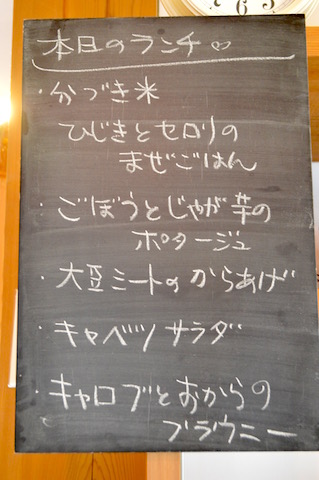 本日のランチ
・分づき米
ひじきとセロリの
まぜごはん
・ごぼうとじゃが芋の
ポタージュ
・大豆ミートのからあげ
・キャベツサラダ
・キャロブとおからの
ブラウニー